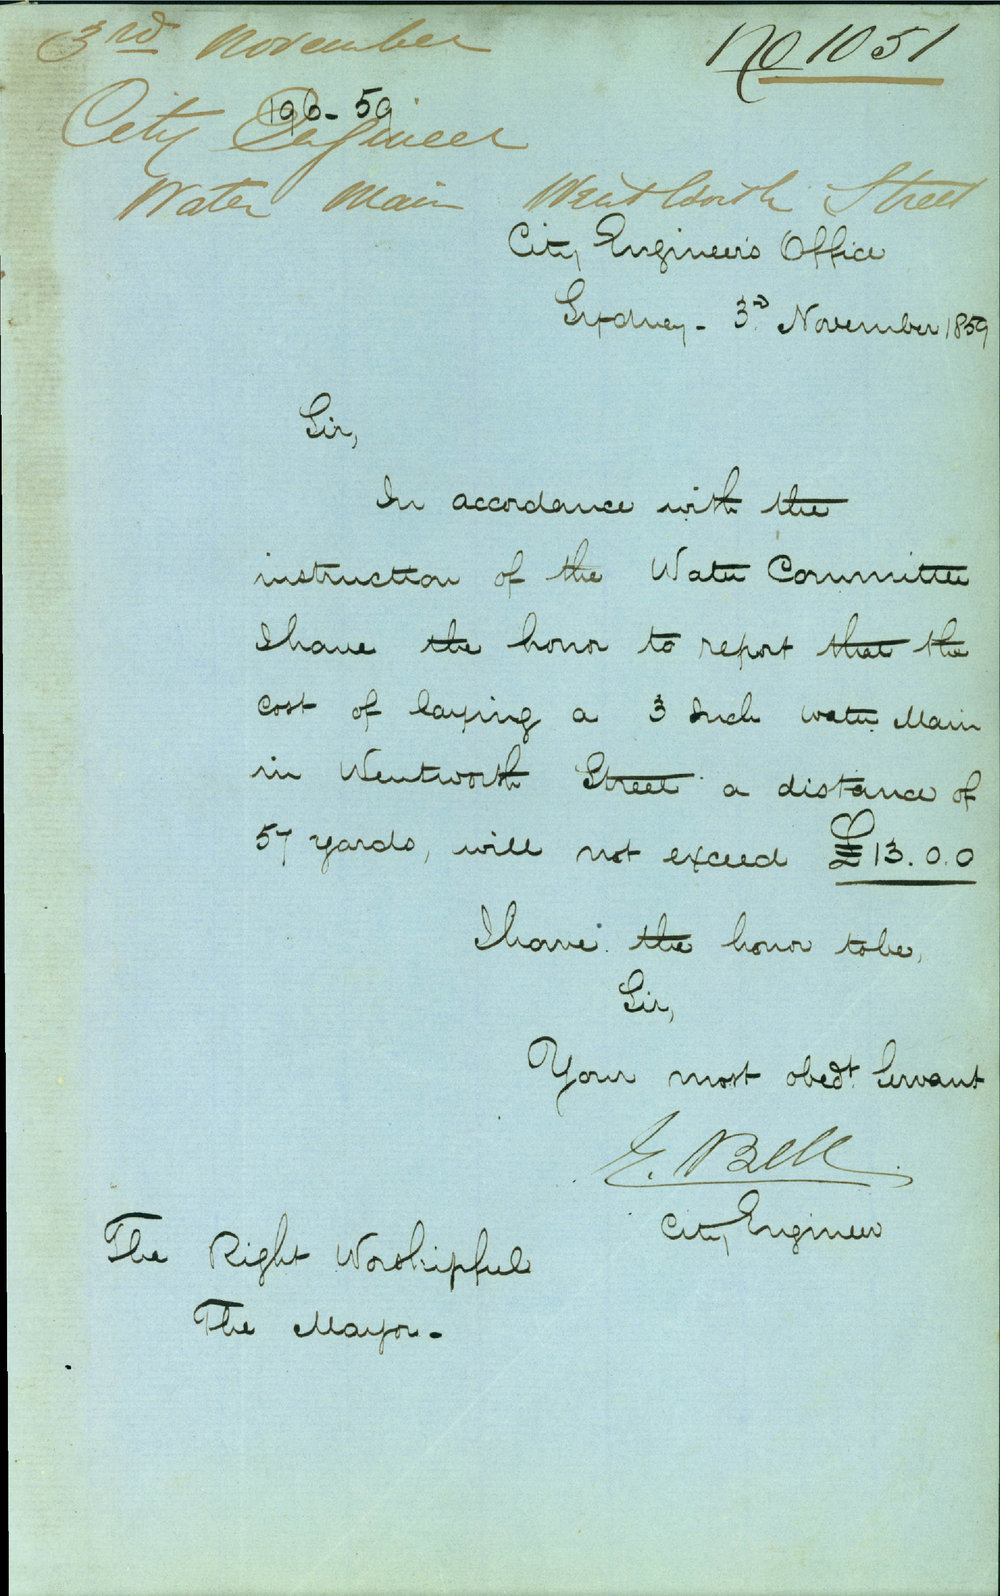 3rd November
No 1051
196-59
City Engineer
Water Main Wentworth Street
City Engineer's Office
Sydney - 3rd November 1859
Sir,
In accordance with the
instruction of the Water Committee
I have the honor to report that the
cost of laying a 3 Inch water Main
in Wentworth Street a distance of
57 yards, will not exceed £13.0.0
I have the honor to be,
Sir,
Your most obedt Servant
E. Bell
City Engineer
The Right Worshipful
The Mayor-